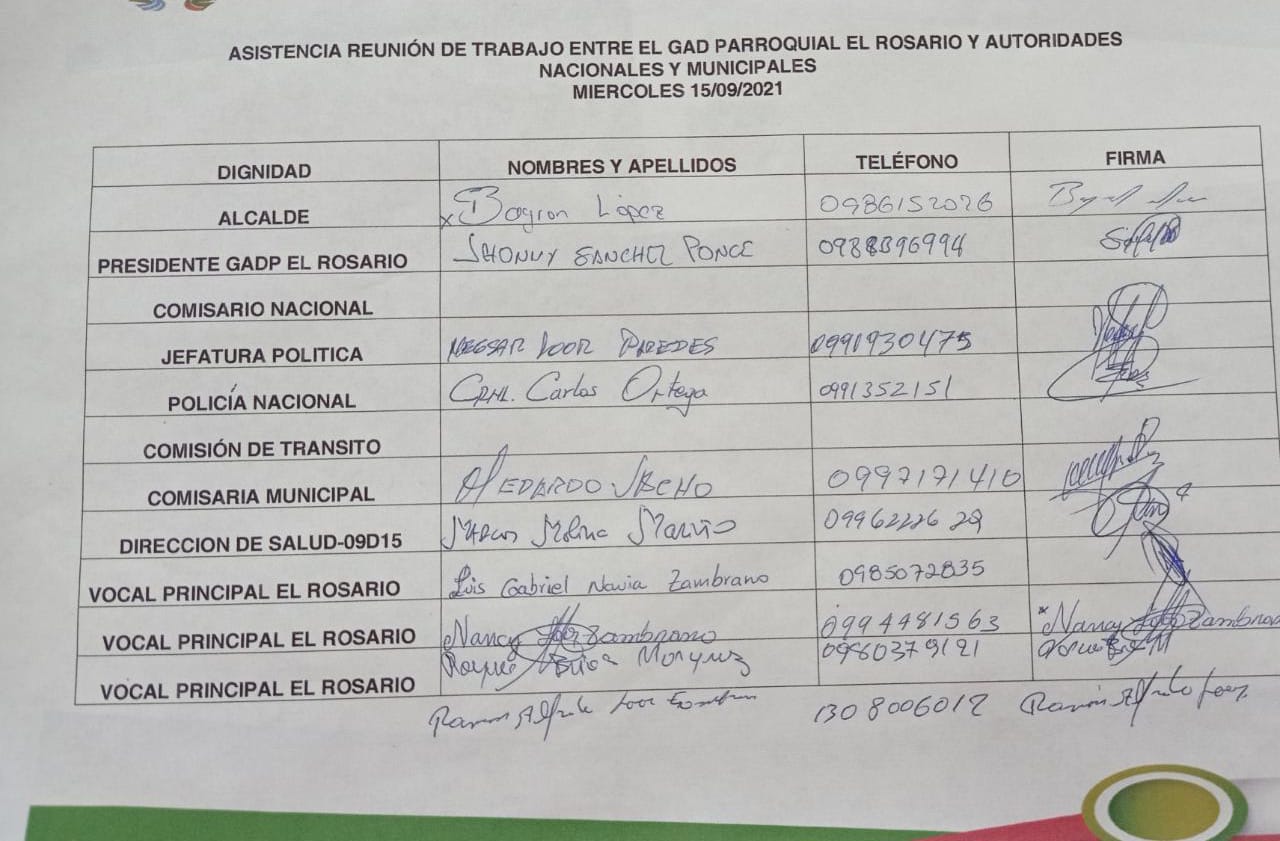 ASISTENCIA REUNIÓN DE TRABAJO ENTRE EL GAD PARROQUIAL EL ROSARIO Y AUTORIDADES
NACIONALES Y MUNICIPALES
MIERCOLES 15/09/2021
DIGNIDAD NOMBRES Y APELLIDOS TELÉFONO FIRMA
ALCALDE x Bayron López 0986152026
PRESIDENTE GADP EL ROSARIO JHONNY SANCHEZ PONCE 0988896994
COMISARIO NACIONAL
JEFATURA POLITICA LOOR PAREDES 0991930475
POLICÍA NACIONAL CRNL. Carlos Ortega 0991352151
COMISIÓN DE TRANSITO
COMISARIA MUNICIPAL 0997171410
DIRECCION DE SALUD-09D15 Marcos Molina
VOCAL PRINCIPAL EL ROSARIO Luis Gabriel Navia Zambrano 0985072835
VOCAL PRINCIPAL EL ROSARIO Nancy Zambrano 0994481563 x Nancy Zambrano
VOCAL PRINCIPAL EL ROSARIO 0980379121
Ramón Alfredo Loor 1308006012 Ramón Alfredo Loor